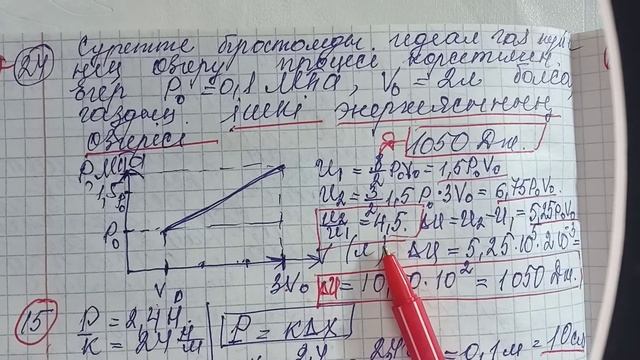 24 Суретте біратомды идеал газ күйі-
нің өзгеру процесі көрсетілген.
Егер P₀ = 0,1 МПа, V₀ = 2л болса,
газдың ішкі энергиясының
өзгерісі 1050 Дж.
P, МПа U₁ = 3/2 P₀V₀ = 1,5P₀V₀
1,5P₀ U₂ = 3/2 · 1,5P₀ · 3V₀ = 6,75P₀V₀
P₀ U₂/U₁ = 4,5. ΔU = U₂ - U₁ = 5,25P₀V₀
V (л) ΔU = 5,25·10⁵·2·10⁻³ =
V₀ 3V₀ ΔU = 10,50·10² = 1050 Дж.
15 P = 2,4 Н. P = kΔx
k = 24 Н/м = 0,1м = 10см